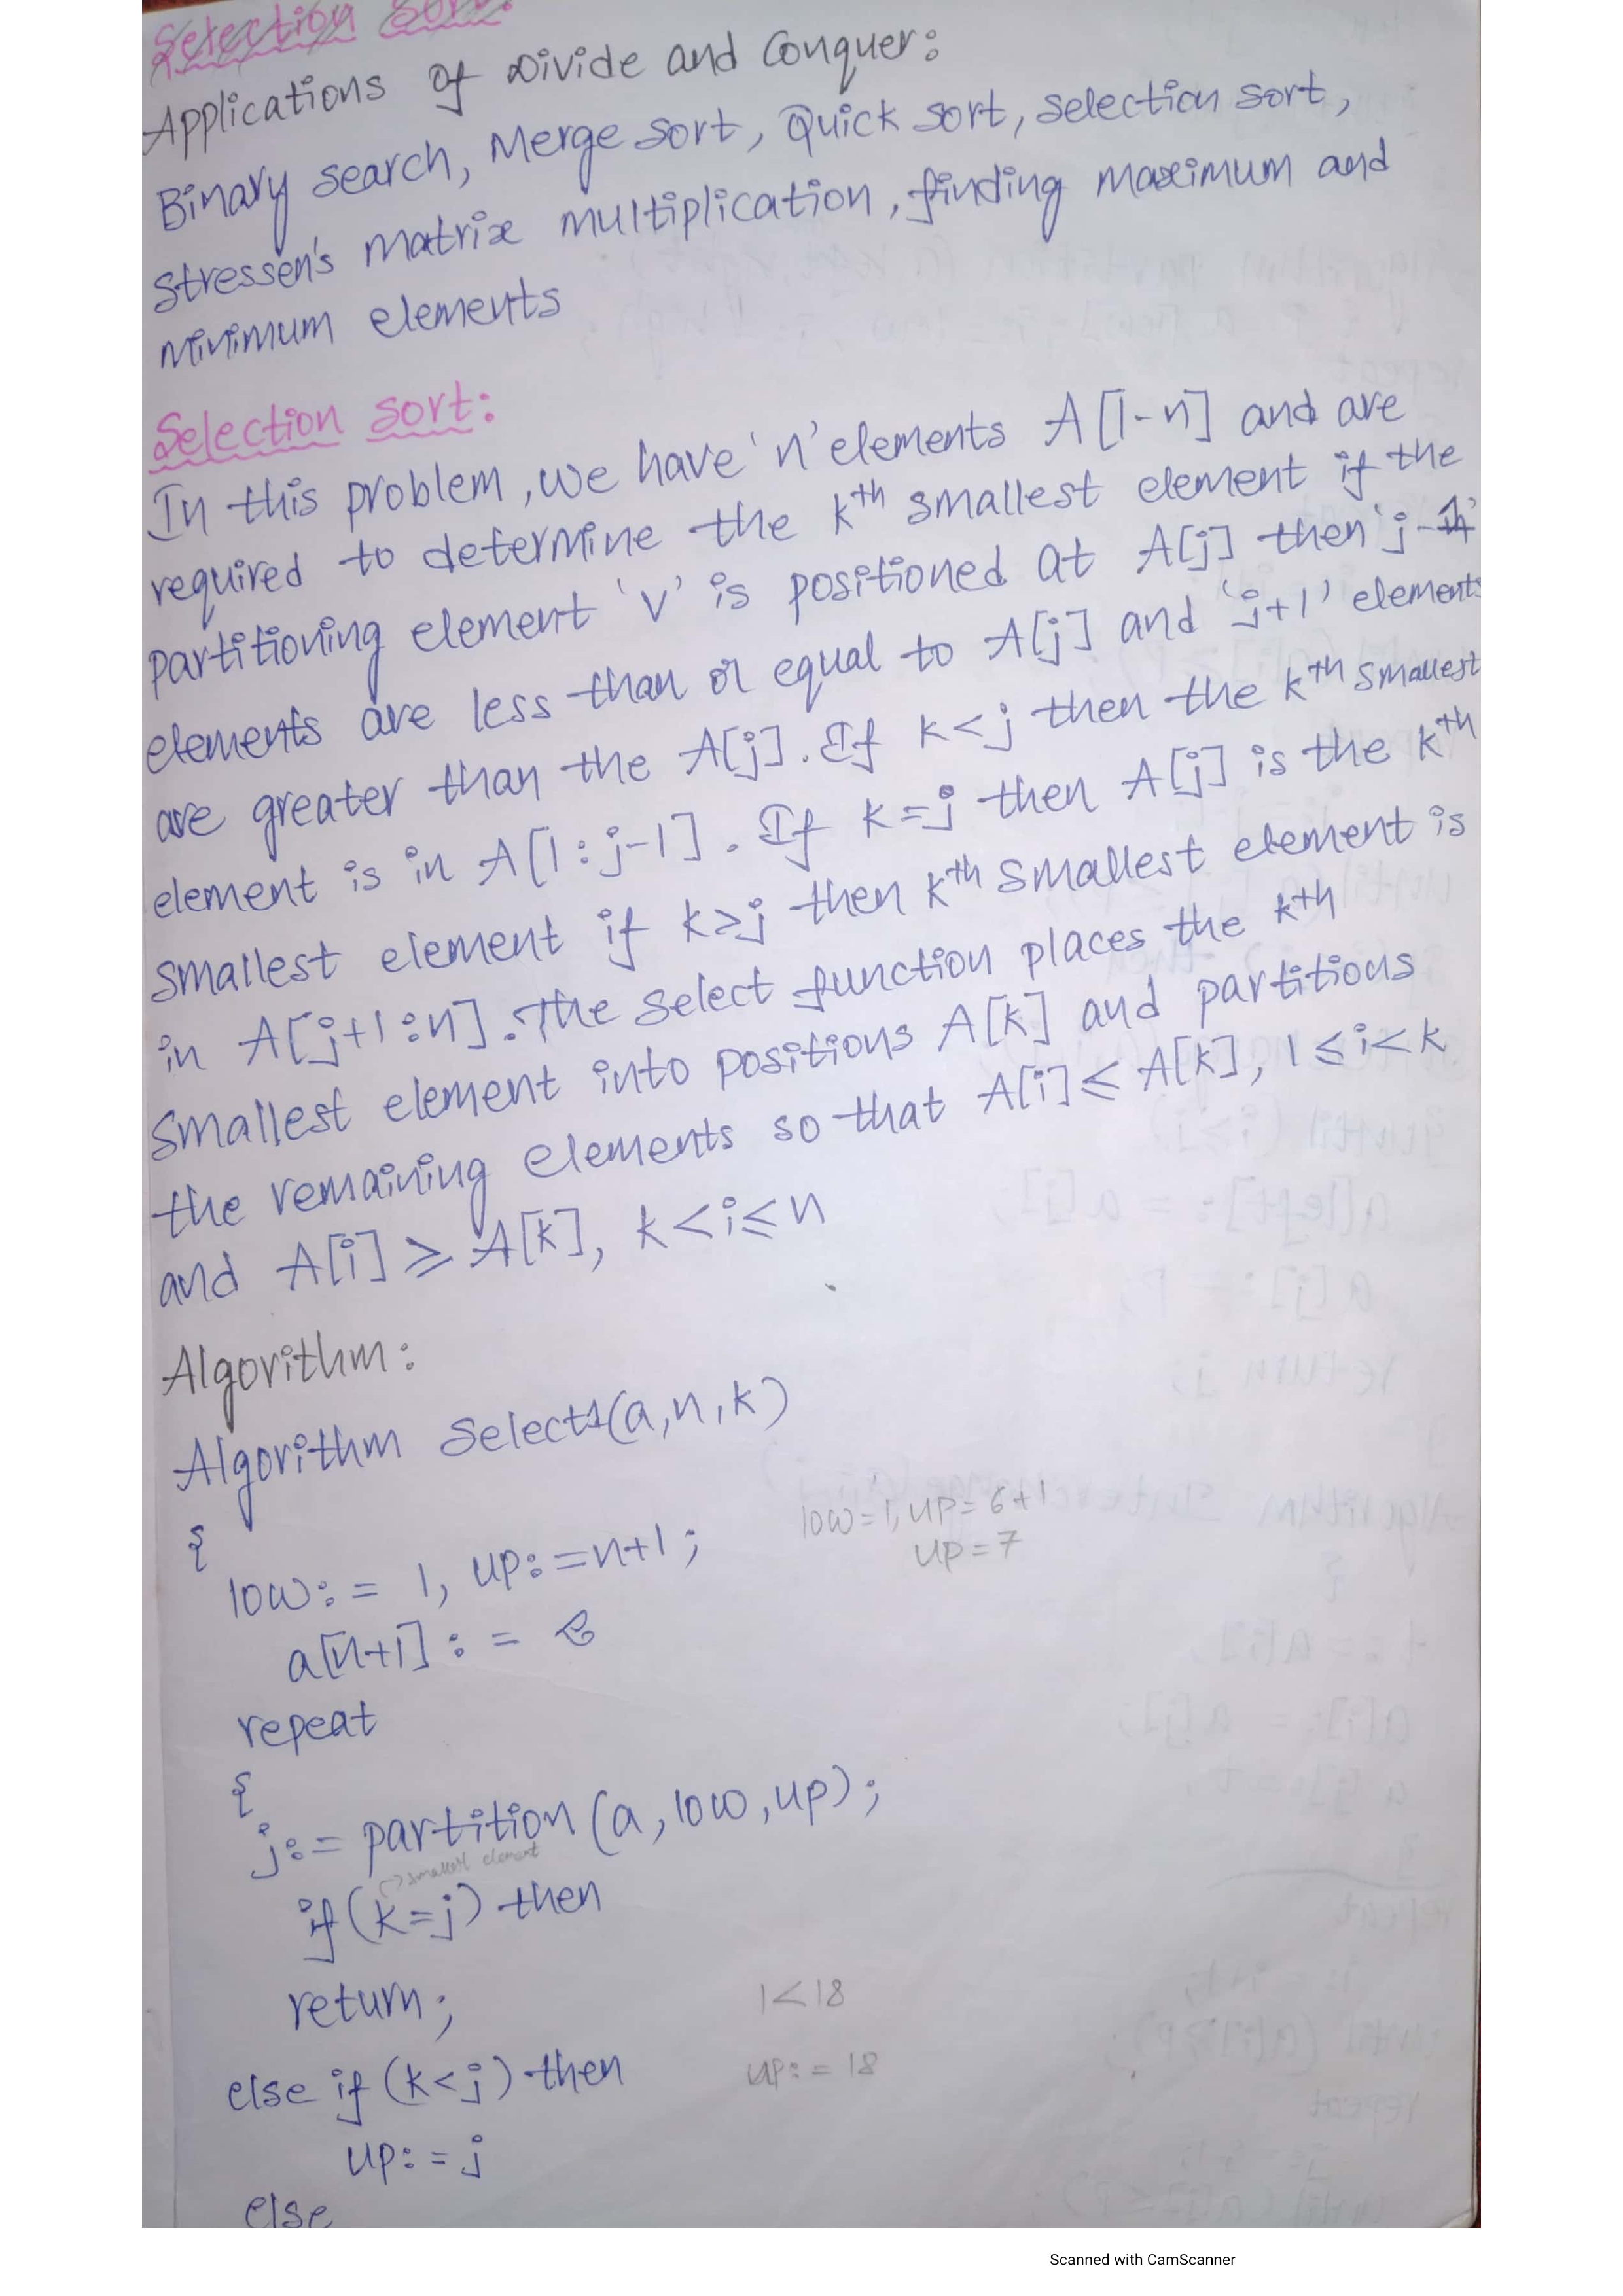 Selection Sort:
Applications of Divide and Conquer:
Binary search, Merge sort, Quick sort, selection sort,
stressen's matrix multiplication, finding maximum and
minimum elements
Selection sort:
In this problem, we have 'n' elements A[1-n] and are
required to determine the kth smallest element if the
partitioning element 'v' is positioned at A[j] then 'j-1'
elements are less than or equal to A[j] and 'j+1' elements
are greater than the A[j]. If k<j then the kth smallest
element is in A[1:j-1]. If k=j then A[j] is the kth
smallest element if k>j then kth smallest element is
in A[j+1:n]. The select function places the kth
smallest element into positions A[k] and partitions
the remaining elements so that A[i]≤A[k], 1≤i<k
and A[i]≥A[k], k<i≤n
Algorithm:
Algorithm Select1(a,n,k)
{
low:= 1, up:=n+1; low=1, up=6+1
up=7
a[n+1]:=
repeat
{
j:= partition (a,low,up);
→smallest element
if (k=j) then
return; 1<18
else if (k<j) then up:=18
up:=j
else
Scanned with CamScanner